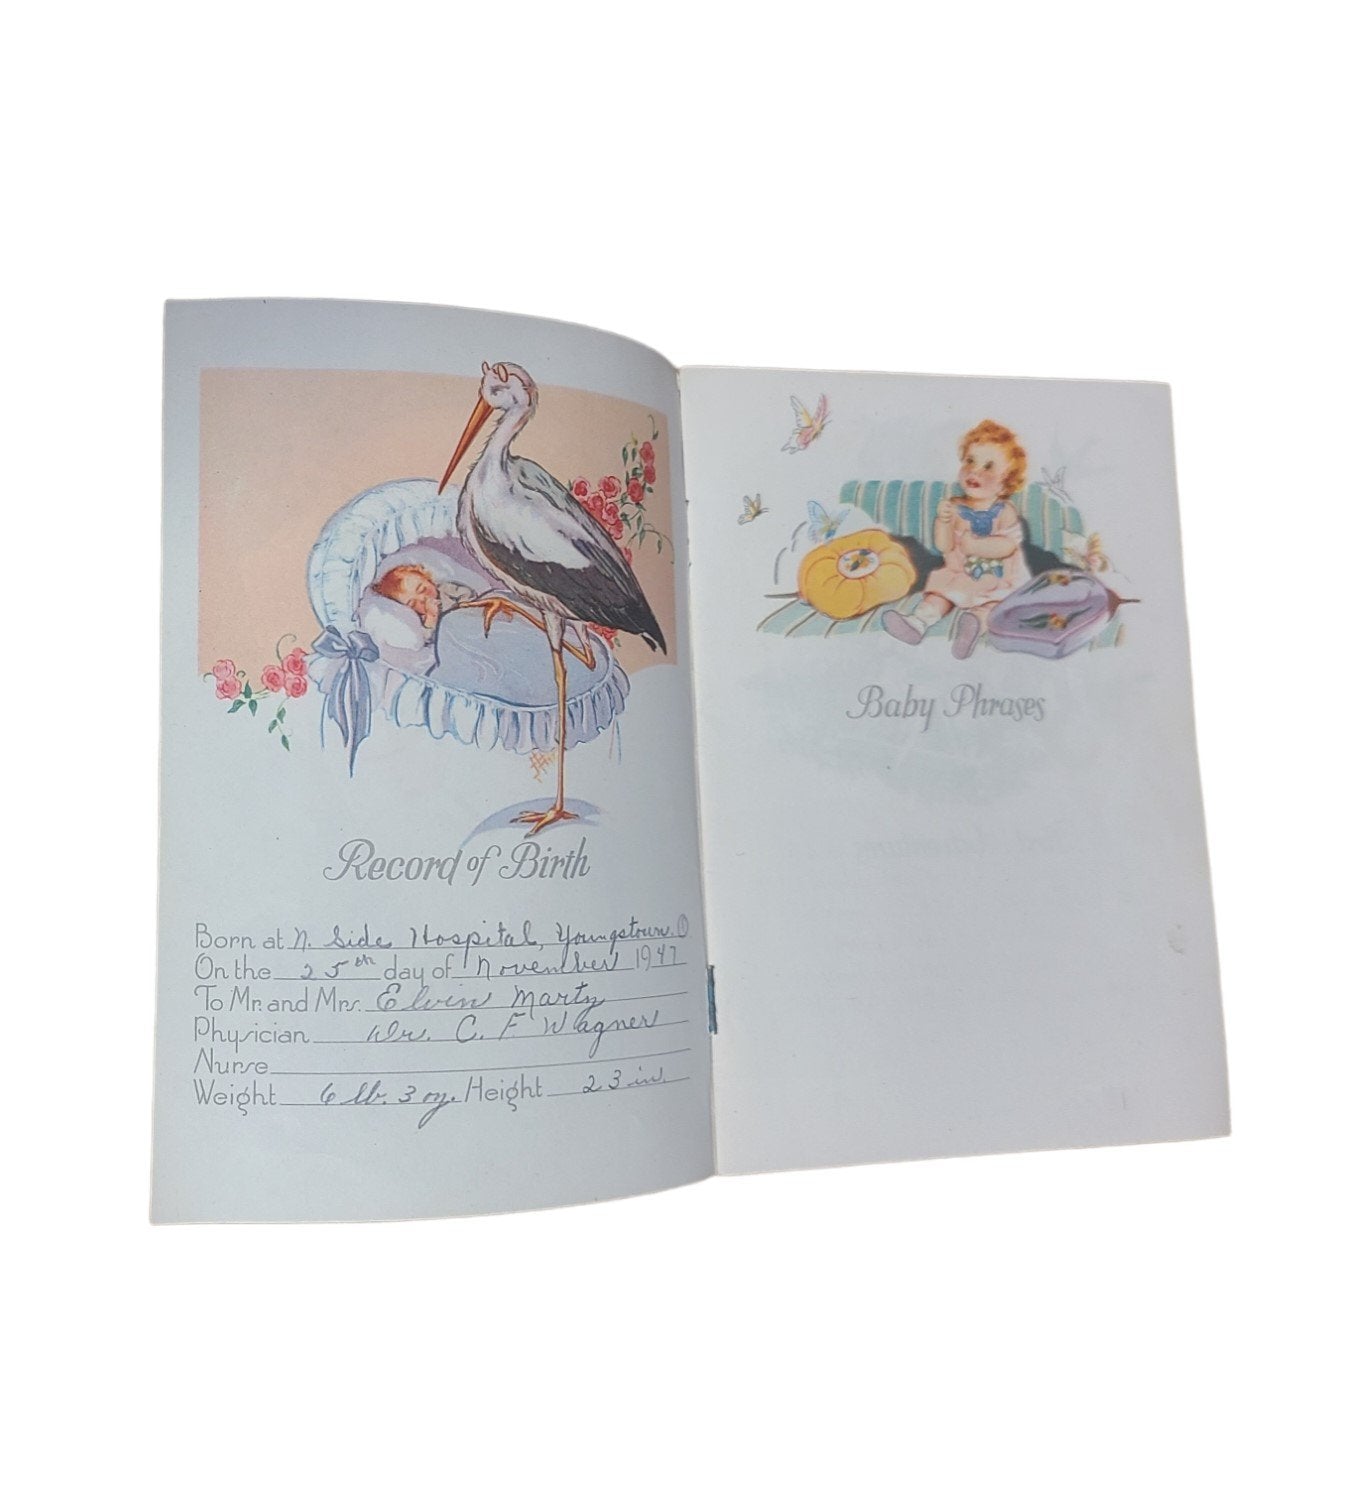 Record of Birth
Born at N. Side Hospital, Youngstown. O
On the 25th day of November 1947
To Mr. and Mrs. Elvin Marty
Physician Dr. C. F. Wagner
Nurse
Weight 6 lb. 3 oz. Height 23 in.
Baby Phrases